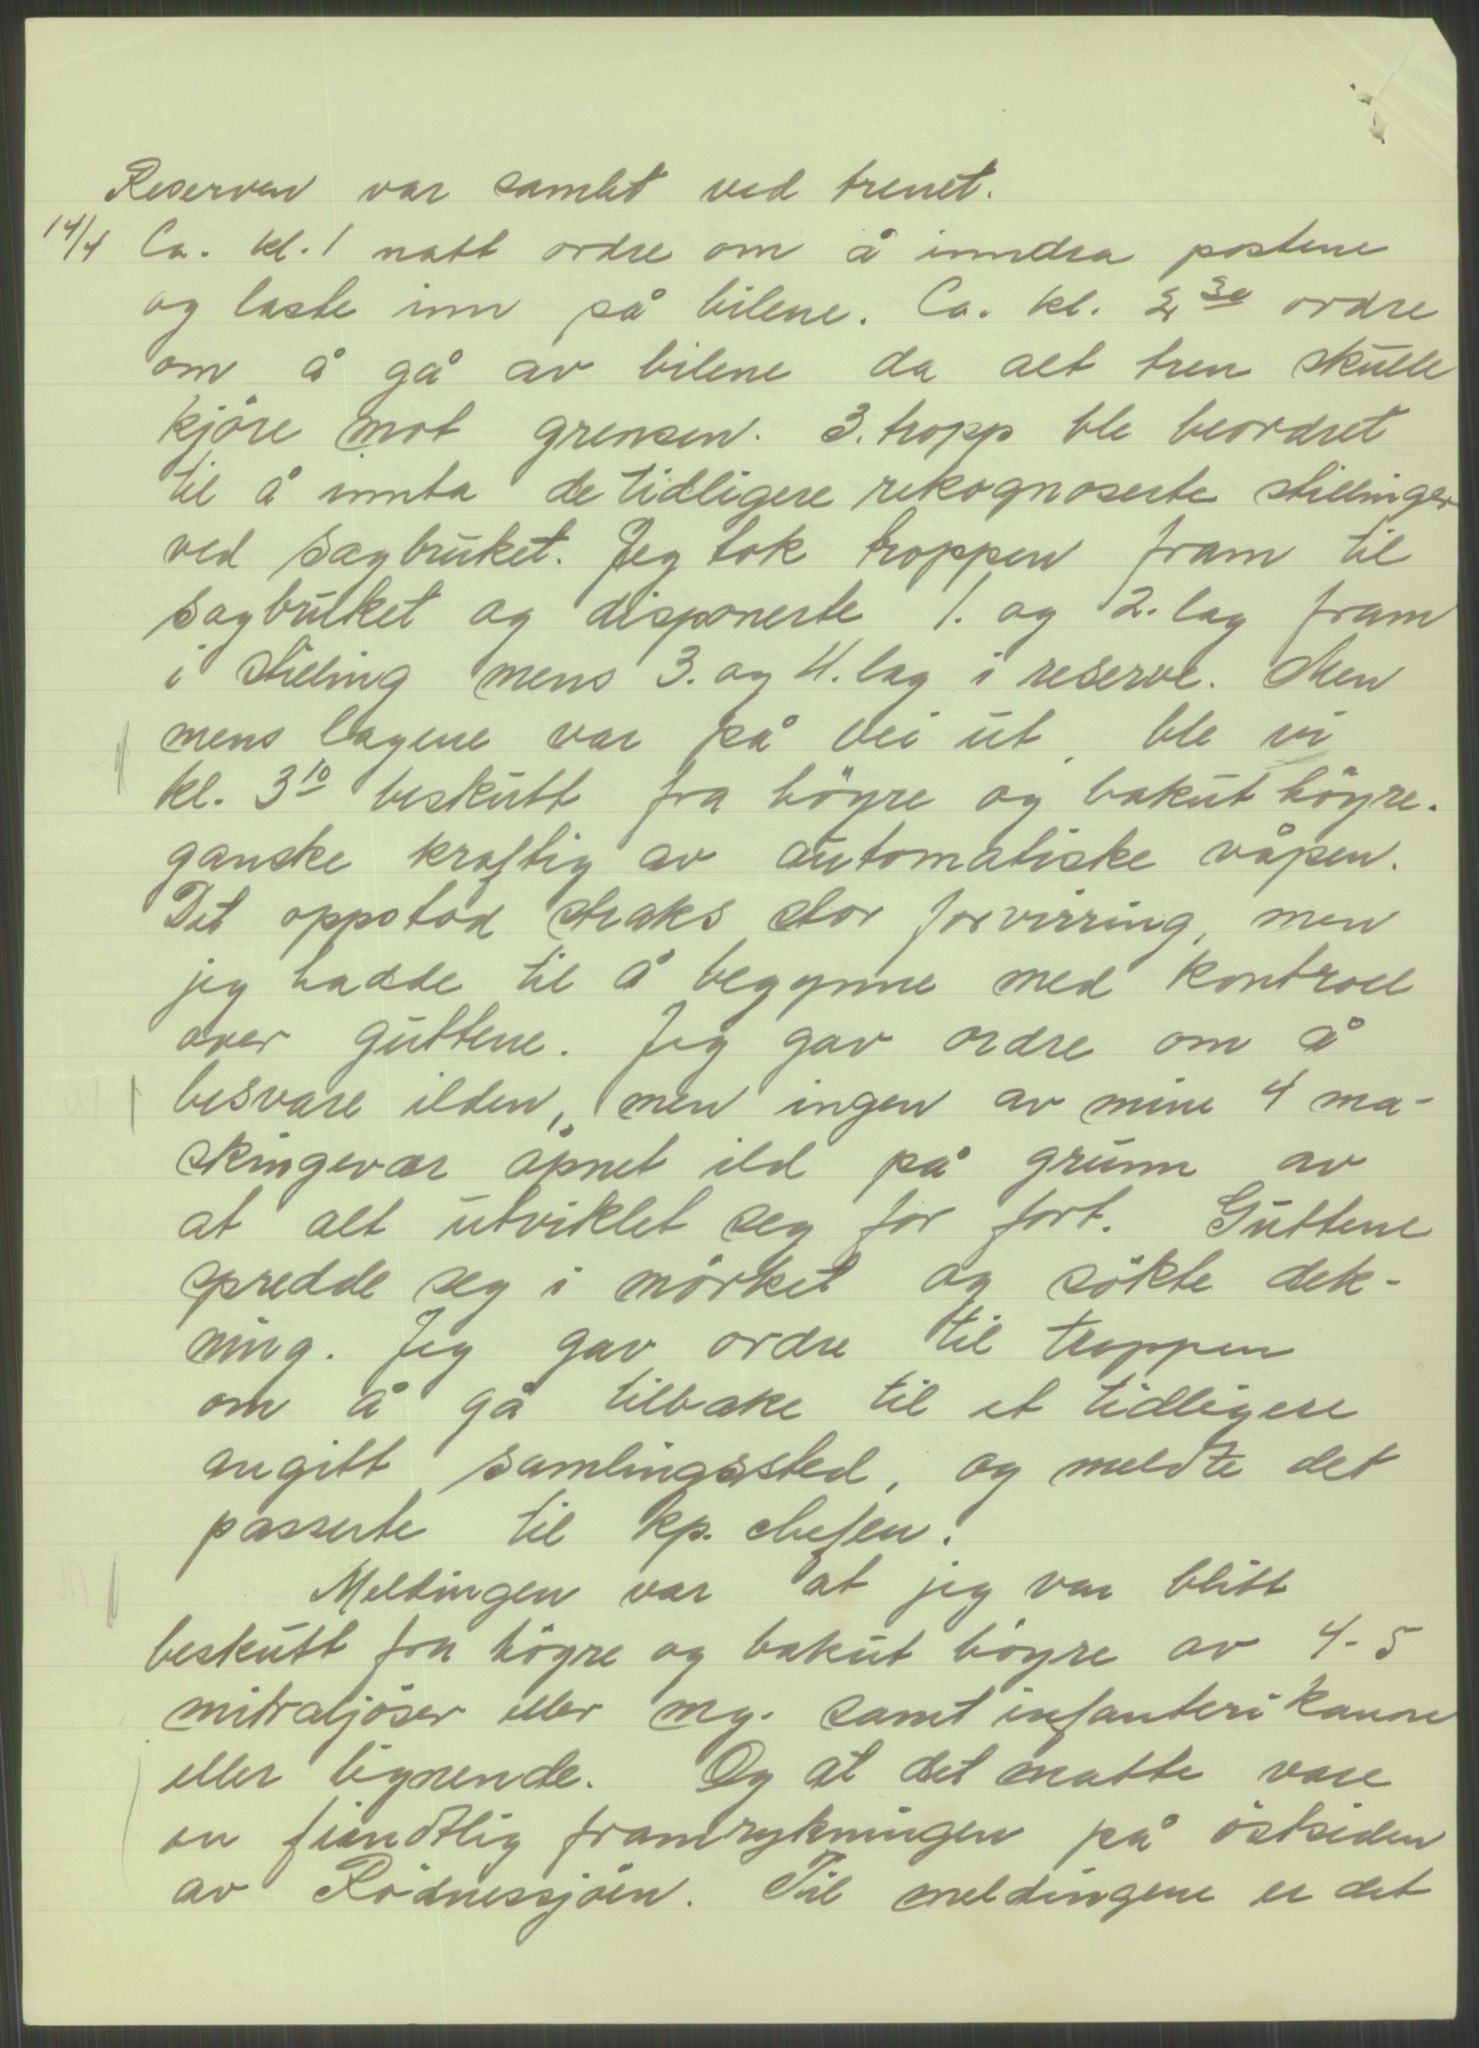 Reserven var samlet ved trenet.
14/4 Ca. kl. 1 natt ordre om å inndra postene
og laste inn på bilene. Ca. kl. 2 30 ordre
om å gå av bilene da alt tren skulle
kjöre mot grensen. 3. tropp ble beordret
til å innta de tidligere rekognoserte stillinger
ved sagbruket. Jeg tok troppen fram til
sagbruket og disponerte 1. og 2. lag fram
i stilling mens 3. og 4. lag i reserve. Men
mens lagene var på vei ut, ble vi
kl. 3 10 beskutt fra högre og bakut högre.
ganske kraftig av automatiske våpen.
Det oppstod straks stor forvirring, men
jeg hadde til å begynne med kontroll
over guttene. Jeg gav ordre om å
besvare ilden, men ingen av mine 4 ma-
skingevær åpnet ild på grunn av
at alt utviklet seg for fort. Guttene
spredde seg i mörket og sökte dek-
ning. Jeg gav ordre til troppen
om å gå tilbake til et tidligere
angitt samlingssted, og meldte det
passerte til kp. chefen.
Meldingen var at jeg var blitt
beskutt fra högre og bakut högre av 4-5
mitraljöser eller mg. samt infanterikanon
eller lignende. Og at det måtte være
en fiendtlig framrykningen på östsiden
av Rödnessjöen. Til meldingene er det